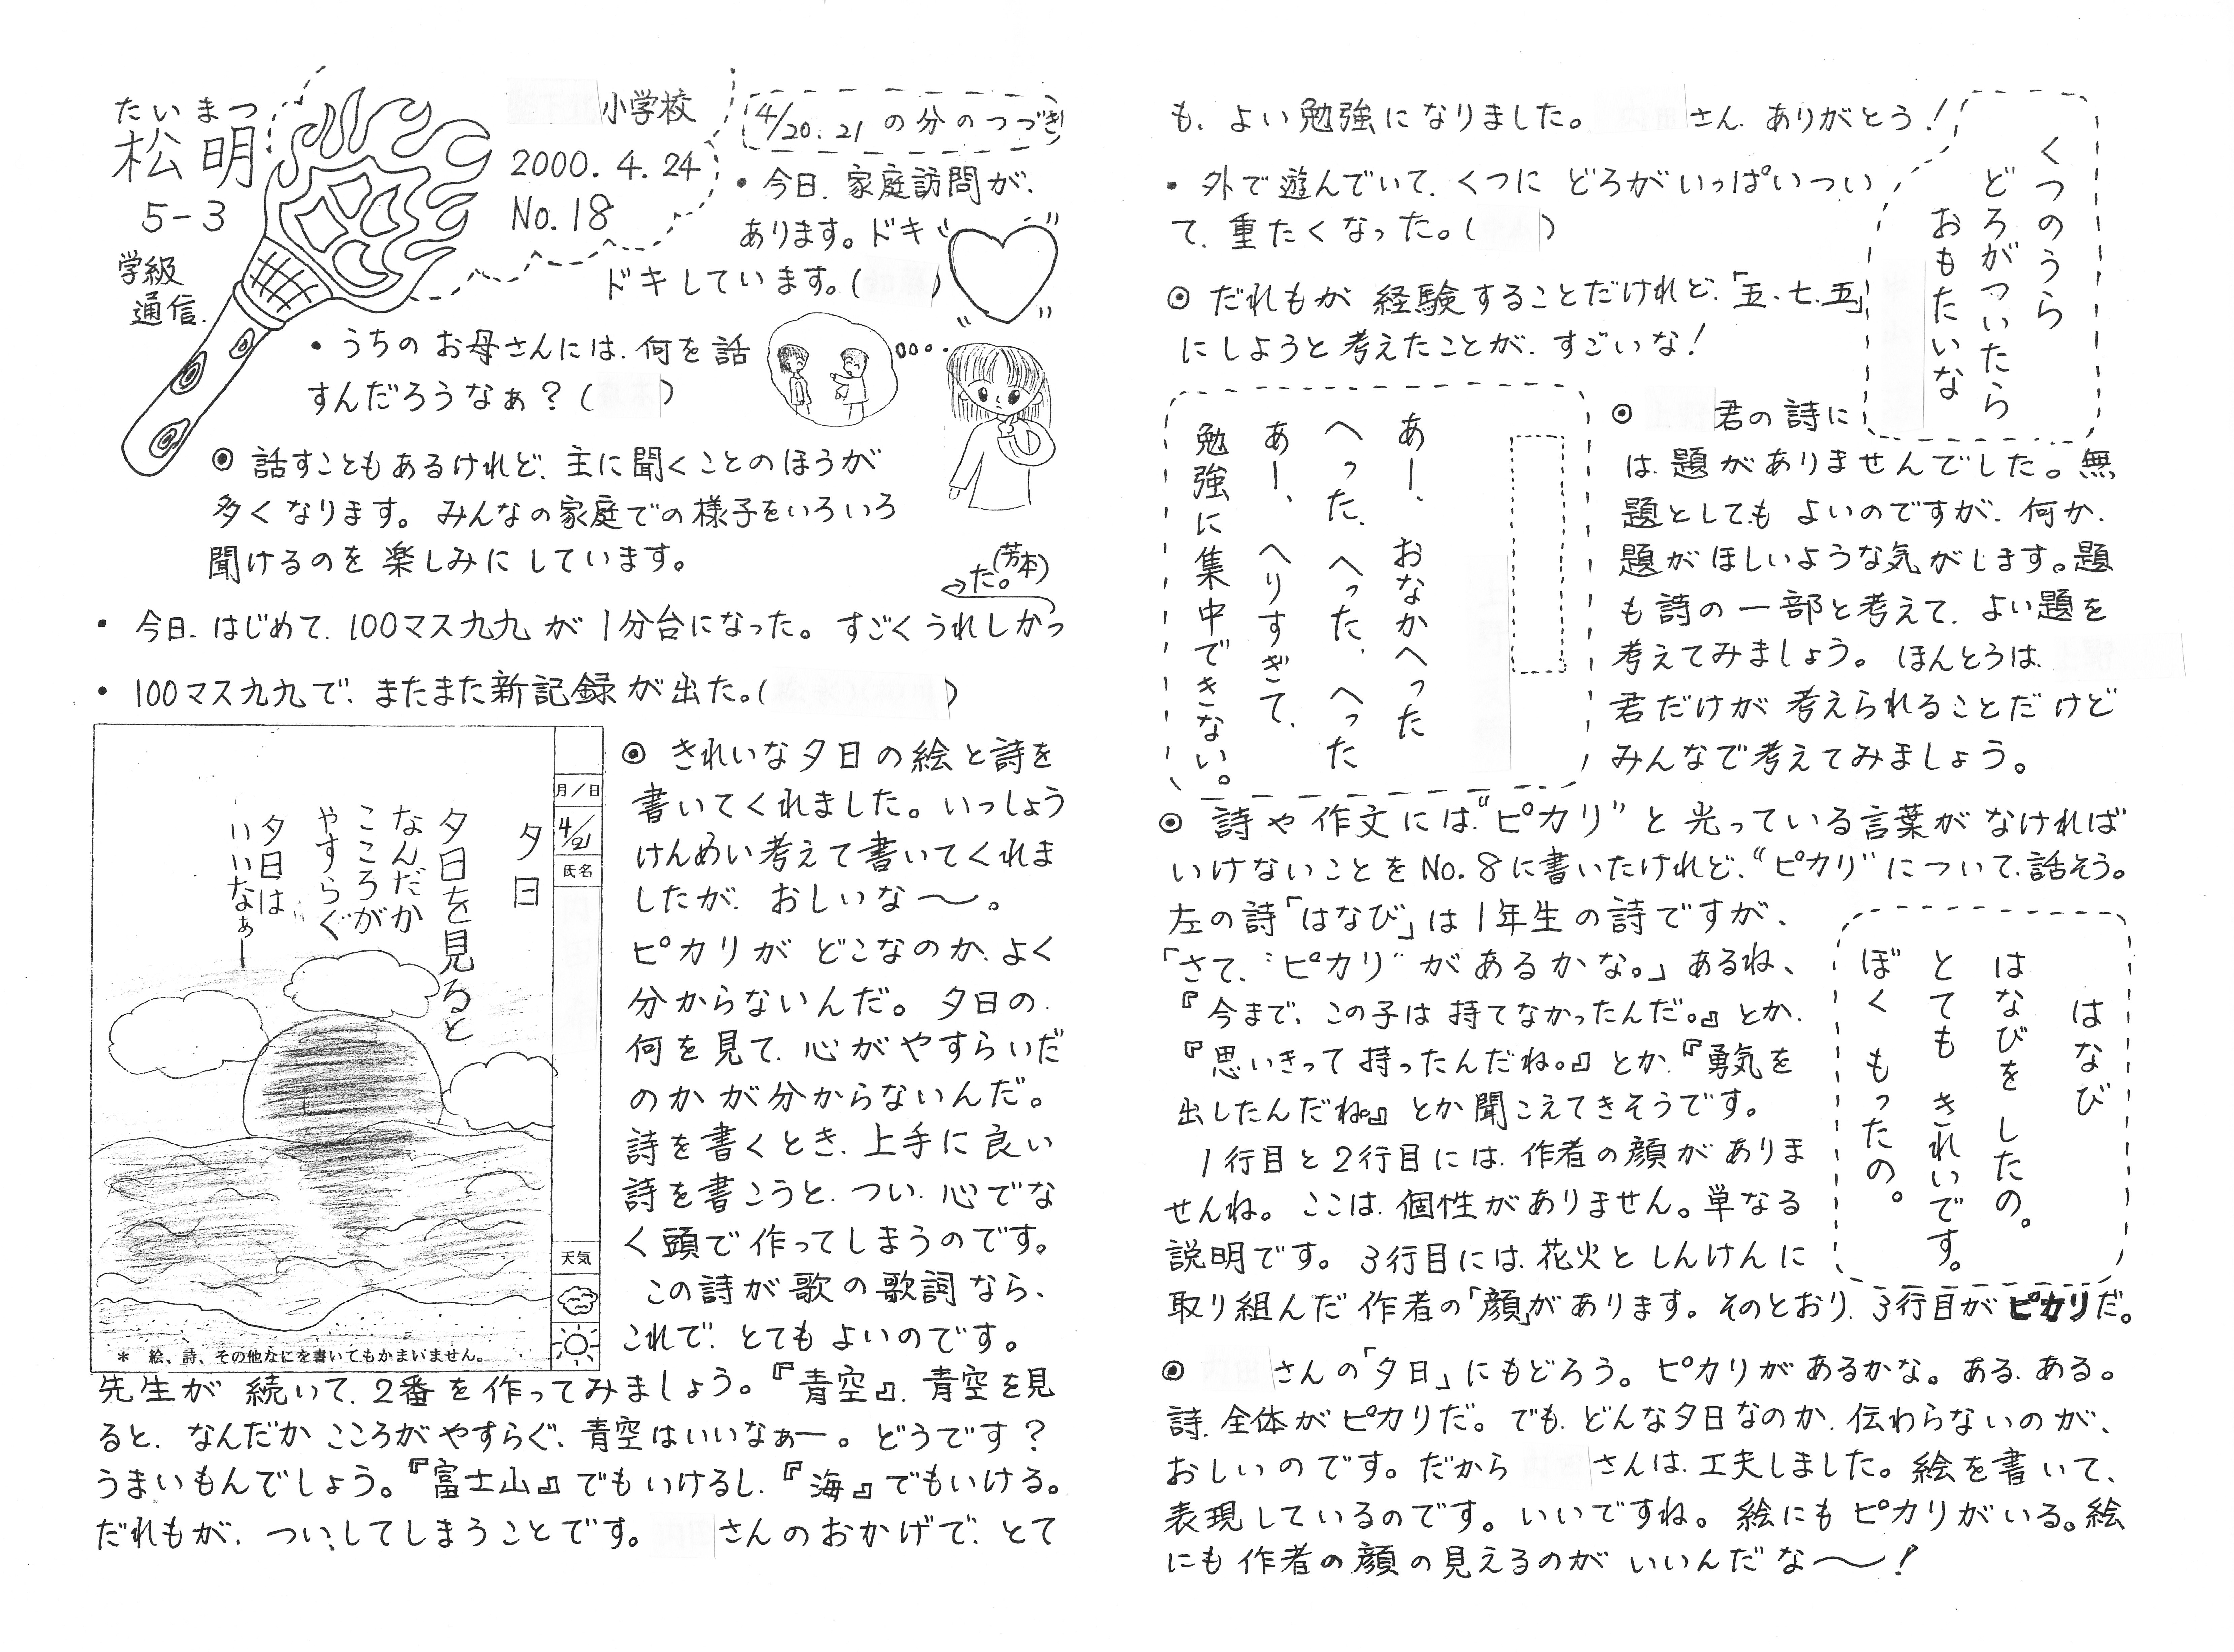 たいまつ
松明
5-3
学級
通信.
小学校
2000. 4. 24
No. 18
4/20. 21 の分のつづき
・今日. 家庭訪問が.
あります。ドキ
ドキしています。( )
・うちの お母さんには. 何を話
すんだろうなぁ？( )
◎ 話すこともあるけれど. 主に聞くことのほうが
多くなります。みんなの家庭での様子をいろいろ
聞けるのを 楽しみに しています。
・今日. はじめて. 100マス九九 が 1分台になった。すごくうれしかっ
た。(芳本)
・100マス九九で、またまた新記録が出た。( )
月/日
4/21
氏名
天気
夕日
夕日を見ると
なんだか
こころが
やすらぐ
夕日は
いいなぁー
＊ 絵、詩、その他なにを書いてもかまいません。
◎ きれいな夕日の絵と詩を
書いてくれました。いっしょう
けんめい考えて書いてくれま
したが. おしいな〜。
ピカリが どこなのか. よく
分からないんだ。夕日の.
何を見て. 心がやすらいだ
のかが分からないんだ。
詩を書くとき. 上手に良い
詩を書こうと. つい. 心でな
く頭で作ってしまうのです。
この詩が歌の歌詞なら、
これで. とてもよいのです。
先生が 続いて. 2番を作ってみましょう。『青空』. 青空を見
ると. なんだか こころが やすらぐ、青空はいいなぁー。どうです？
うまいもんでしょう。『富士山』でもいけるし.『海』でもいける。
だれもが. つい、してしまうことです。 さんのおかげで. とて
も. よい勉強になりました。 さん. ありがとう！
・外で遊んでいて. くつに どろがいっぱいつい
て. 重たくなった。( )
くつのうら
どろがついたら
おもたいな
◎ だれもが 経験することだけれど.「五・七・五」
にしようと考えたことが. すごいな！
あー、 おなかへった
へった、へった、へった
あー、へりすぎて、
勉強に集中できない。
◎ 君の詩に
は. 題がありませんでした。無
題としても よいのですが. 何か.
題がほしいような気がします。題
も詩の一部と考えて. よい題を
考えてみましょう。ほんとうは.
君だけが 考えられることだけど
みんなで考えてみましょう。
◎ 詩や作文には“ピカリ”と光っている言葉がなければ
いけないことをNo. 8に書いたけれど.“ピカリ”について. 話そう。
左の詩「はなび」は1年生の詩ですが、
「さて.“ピカリ”があるかな。」あるね、
『今まで、この子は持てなかったんだ。』とか.
『思いきって持ったんだね。』とか.『勇気を
出したんだね。』とか聞こえてきそうです。
1行目と2行目には. 作者の顔がありま
せんね。ここは. 個性がありません。単なる
説明です。3行目には. 花火としんけんに
取り組んだ作者の「顔」があります。そのとおり. 3行目がピカリだ。
はなび
はなびを したの。
とても きれいです。
ぼく もったの。
◎ さんの「夕日」にもどろう。ピカリがあるかな。ある. ある。
詩. 全体がピカリだ。でも. どんな夕日なのか. 伝わらないのが、
おしいのです。だから さんは. 工夫しました。絵を書いて、
表現しているのです。いいですね。絵にもピカリがいる。絵
にも作者の顔の見えるのが いいんだな〜！